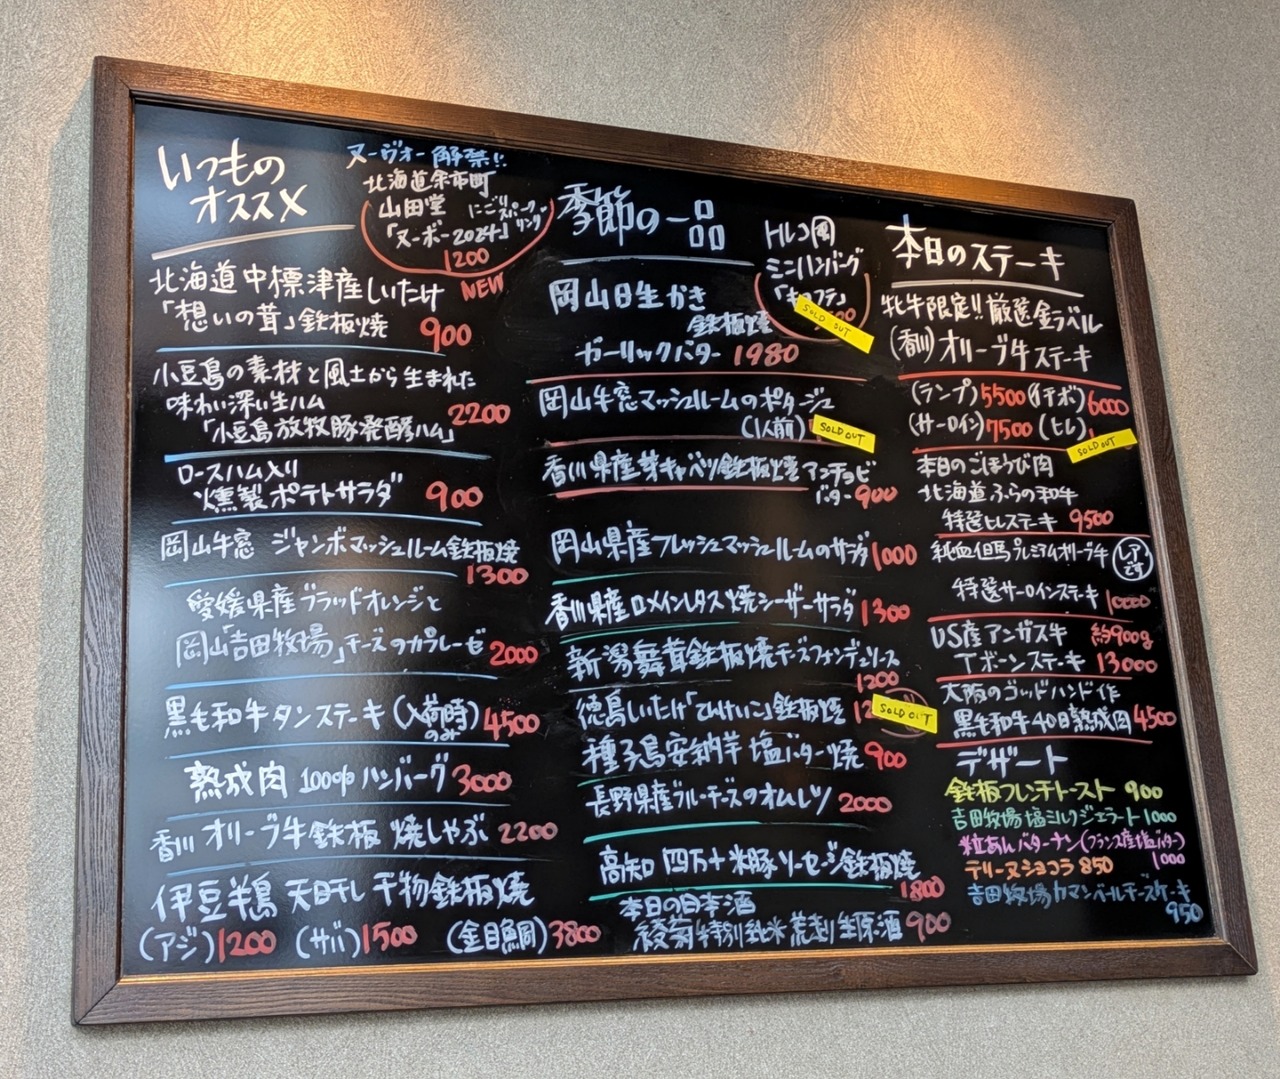 いつもの
オススメ
ヌーヴォー解禁!!
北海道余市町
山田堂 にごりスパークリング
「ヌーボー2024」
1200
北海道中標津産しいたけ NEW
「想いの茸」鉄板焼 900
小豆島の素材と風土から生まれた
味わい深い生ハム 2200
「小豆島放牧豚発酵ハム」
ロースハム入り
燻製ポテトサラダ 900
岡山牛窓 ジャンボマッシュルーム鉄板焼
1300
愛媛県産ブラッドオレンジと
岡山「吉田牧場」チーズのカプレーゼ 2000
黒毛和牛タンステーキ(入荷時のみ) 4500
熟成肉 100% ハンバーグ 3000
香川 オリーブ牛鉄板 焼しゃぶ 2200
伊豆半島 天日干し 干物鉄板焼
(アジ)1200 (サバ)1500 (金目鯛)3800
季節の一品
トルコ風
ミニハンバーグ
「キョフテ」
SOLD OUT
岡山日生かき
鉄板焼
ガーリックバター 1980
岡山牛窓マッシュルームのポタージュ
(1人前) SOLD OUT
香川県産芽キャベツ鉄板焼 アンチョビ
バター 900
岡山県産フレッシュマッシュルームのサラダ 1000
香川県産ロメインレタス焼シーザーサラダ 1300
新潟舞茸鉄板焼チーズフォンデュソース
1200
徳島しいたけ「てんけいこ」鉄板焼 SOLD OUT
種子島安納芋 塩バター焼 900
長野県産ブルーチーズのオムレツ 2000
高知 四万十米豚ソーセージ鉄板焼
1800
本日の日本酒
綾菊特別純米 荒走り生原酒 900
本日のステーキ
牝牛限定!!厳選金ラベル
(香川)オリーブ牛ステーキ
(ランプ)5500(イチボ)6000
(サーロイン)7500(ヒレ)
SOLD OUT
本日のごほうび肉
北海道ふらの和牛
特選ヒレステーキ 9500
純血但馬プレミアムオリーブ牛 レアです
特選サーロインステーキ 10000
US産アンガス牛 約900g
Tボーンステーキ 13000
大阪のゴッドハンド作
黒毛和牛40日熟成肉 4500
デザート
鉄板フレンチトースト 900
吉田牧場塩ミルクジェラート 1000
粒あんバターナン(フランス産塩バター)
1000
テリーヌショコラ 850
吉田牧場カマンベールチーズケーキ
950